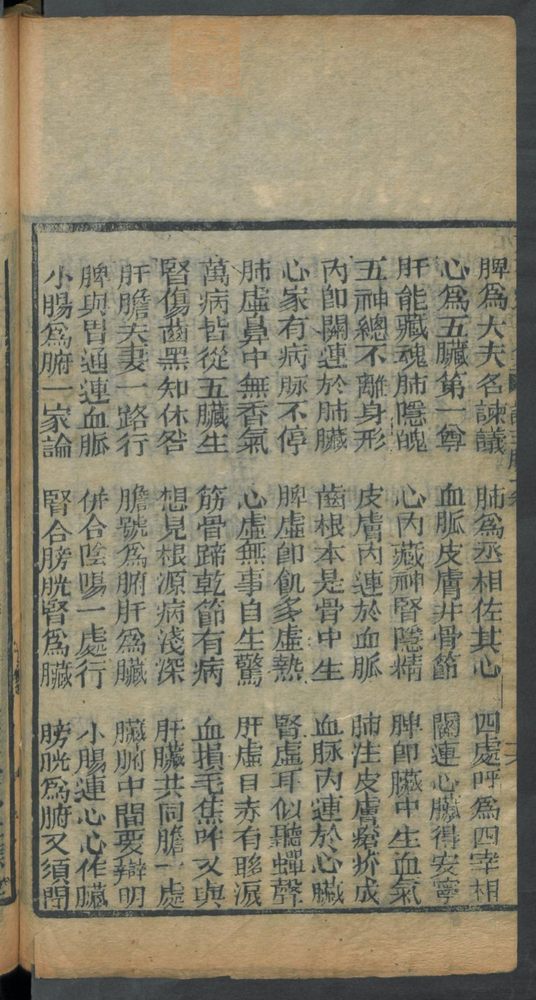 脾爲大夫名諫議　肺爲丞相佐其心　四處呼爲四宰相
心爲五臟第一尊　血脈皮膚并骨節　關連心臟得安寧
肝能藏魂肺隱魄　心内藏神腎隱精　脾卽臟中生血氣
五神總不離身形　皮膚内連於血脈　肺注皮膚瘡疥成
内卽關連於肺臟　齒根本是骨中生　血脉内連於心臟
心家有病脉不停　脾虛卽飢多虛熱　腎虛耳似聽蟬聲
肺虛鼻中無香氣　心虛無事自生驚　肝虛目赤有眵淚
萬病皆從五臟生　筋骨蹄乾節有病　血損毛焦吽又與
腎傷齒黑知休咎　想見根源病淺深　肝臟共同膽一處
肝膽夫妻一路行　膽號爲腑肝爲臟　臟腑中間要辯明
脾與胃通連血脈　併合陰陽一處行　小腸連心心作臟
小腸爲腑一家論　腎合膀胱腎爲臟　膀胱爲腑又須